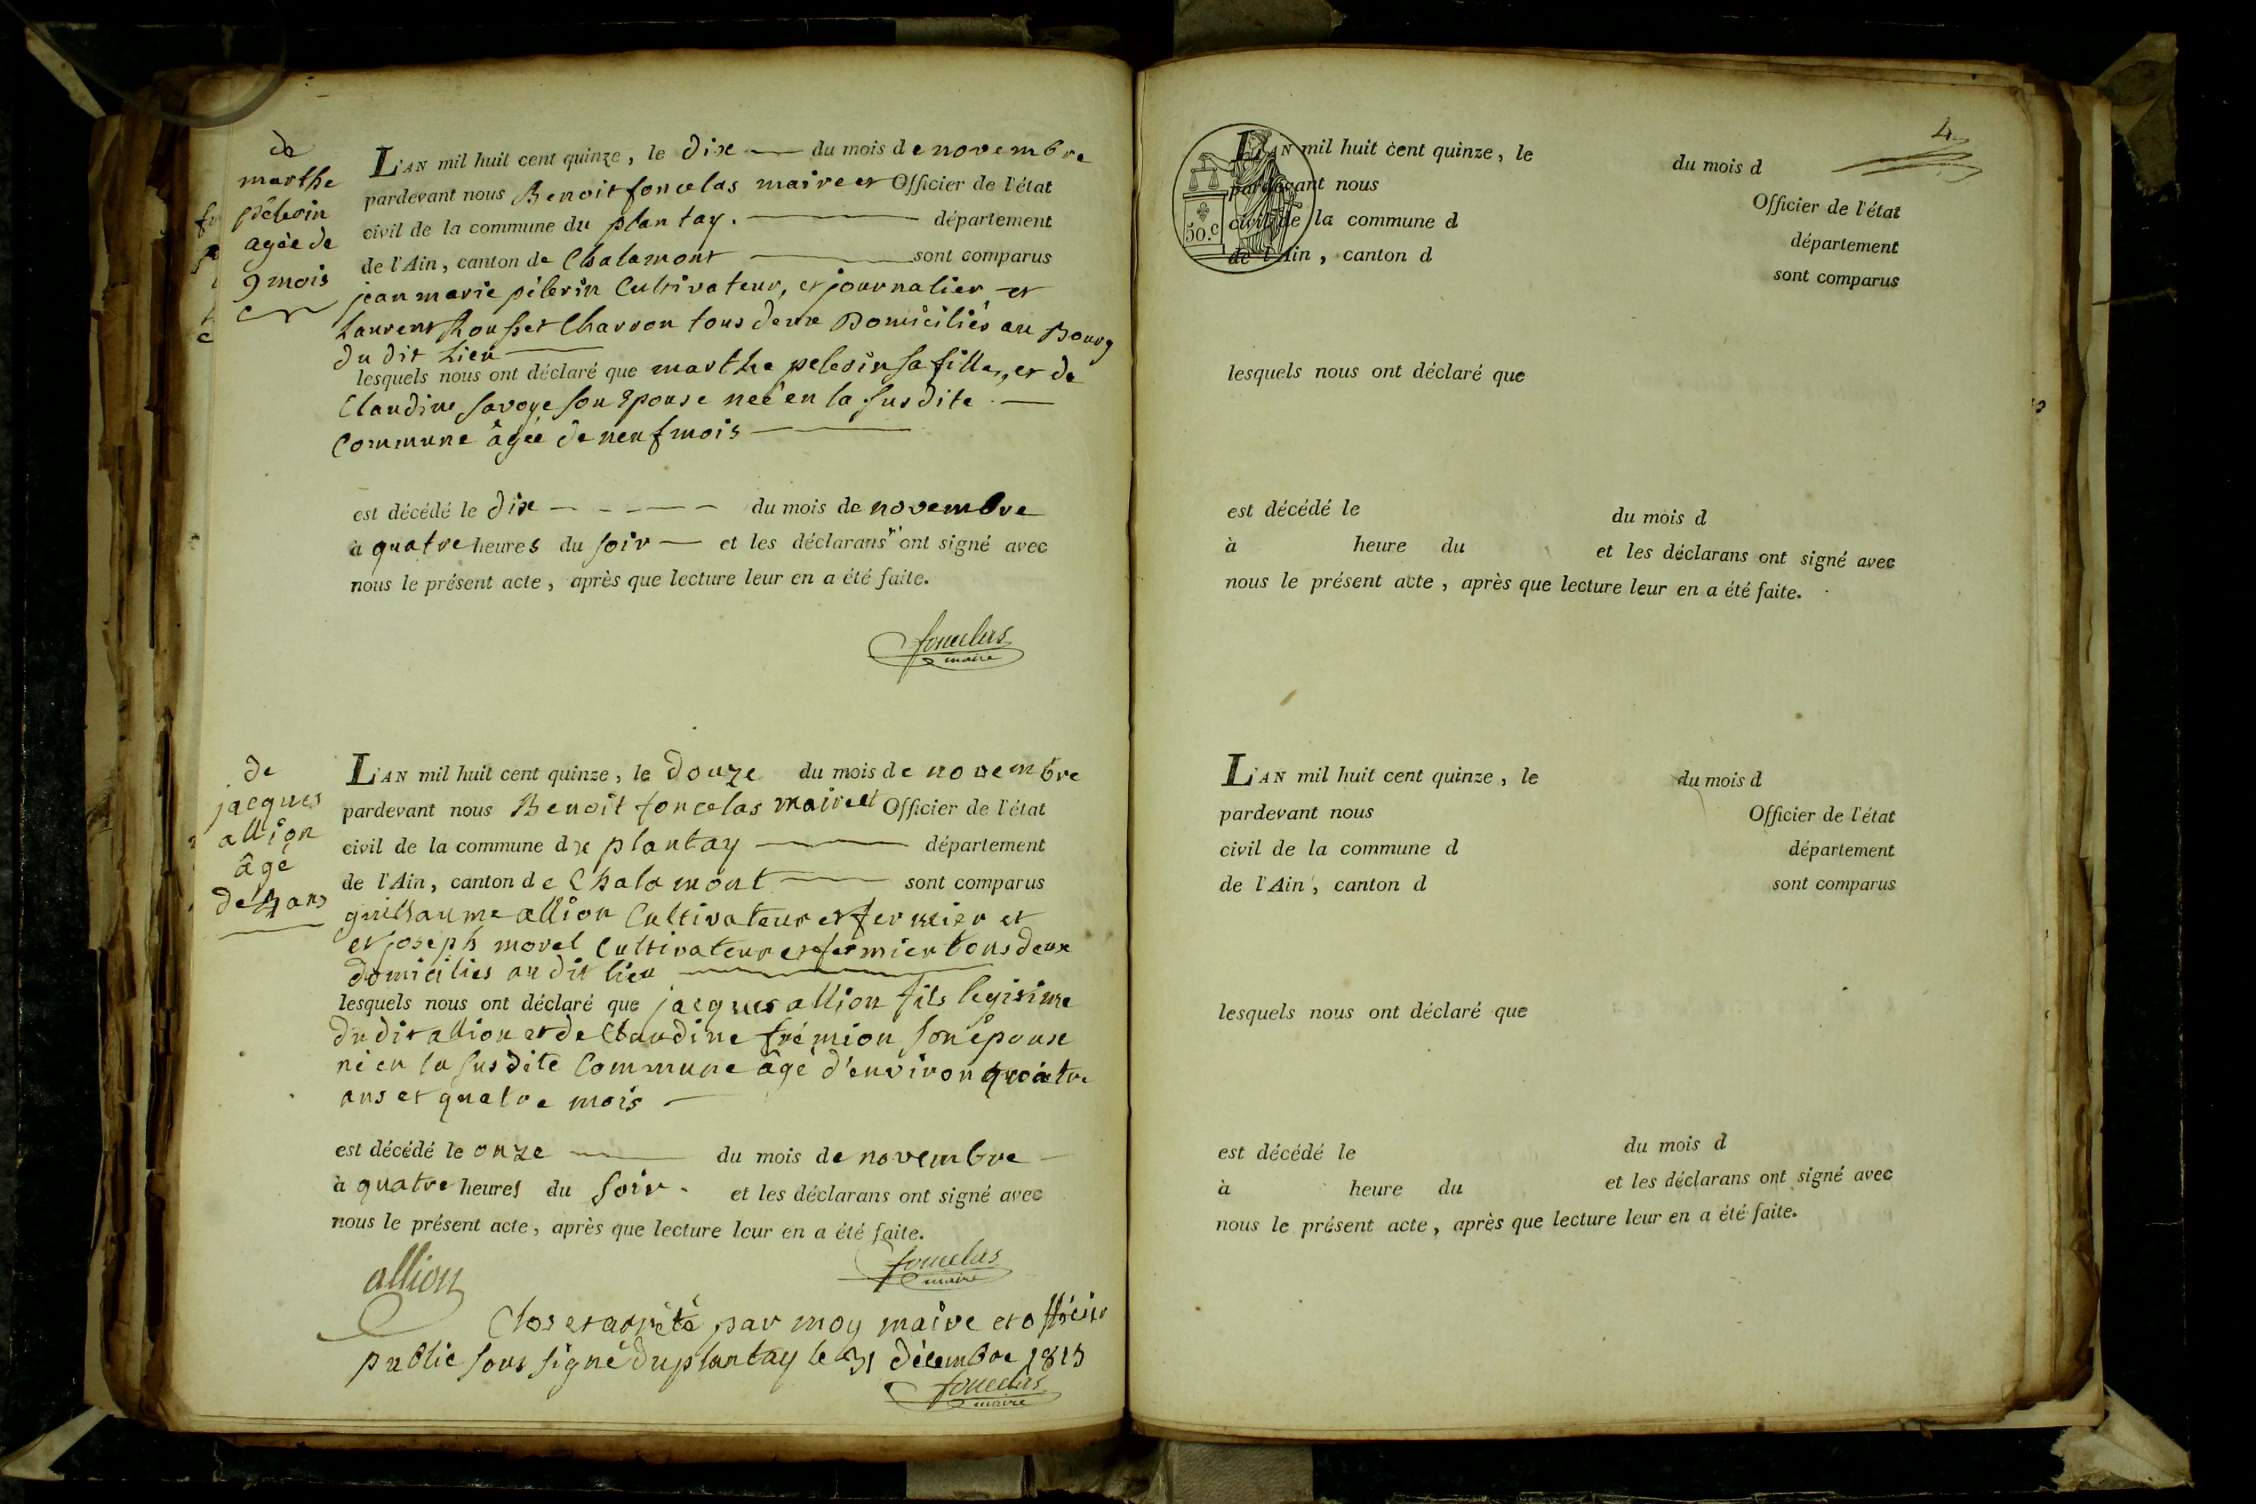 de
marthe
pèlerin
agée de
9 mois
L'AN mil huit cent quinze, le dix du mois de novembre
pardevant nous Benoit foncelas maire et Officier de l'état
civil de la commune du plantay. département
de l'Ain, canton de Chalamont sont comparus
jean marie pèlerin Cultivateur, et journalier et
Laurent Rousset Charron tous deux Domiciliés au Bourg
du dit Lieu
lesquels nous ont déclaré que marthe pelerin sa fille, et de
Claudine Savoye son Epouse neé en la susdite
Commune âgée de neuf mois
est décédé le dix du mois de novembre
à quatre heures du soir et les déclarans ont signé avec
nous le présent acte, après que lecture leur en a été faite.
foncelas
maire
de
jacques
allion
âgé
de 4 ans
L'AN mil huit cent quinze, le douze du mois de novembre
pardevant nous Benoit foncelas maire et Officier de l'état
civil de la commune de plantay département
de l'Ain, canton de Chalamont sont comparus
guillaume allion Cultivateur et fermier et
et joseph morel Cultivateur et fermier tous deux
domiciliés au dit lieu
lesquels nous ont déclaré que jacques allion fils legitime
du dit allion et de Claudine frémion son épouse
né en la susdite Commune âgé d'environ quatre
ans et quatre mois
est décédé le onze du mois de novembre
à quatre heures du soir. et les déclarans ont signé avec
nous le présent acte, après que lecture leur en a été faite.
allion
foncelas
maire
Clos et arrêté par moy maire et officier
public sous signé du plantay le 31 décembre 1815
foncelas
maire
4
50.c
L'AN mil huit cent quinze, le du mois d
pardevant nous Officier de l'état
civil de la commune d département
de l'Ain, canton d sont comparus
lesquels nous ont déclaré que
est décédé le du mois d
à heure du et les déclarans ont signé avec
nous le présent acte, après que lecture leur en a été faite.
L'AN mil huit cent quinze, le du mois d
pardevant nous Officier de l'état
civil de la commune d département
de l'Ain, canton d sont comparus
lesquels nous ont déclaré que
est décédé le du mois d
à heure du et les déclarans ont signé avec
nous le présent acte, après que lecture leur en a été faite.